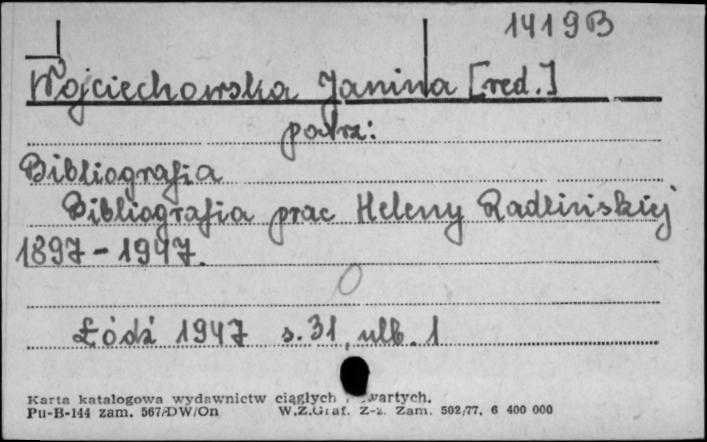 1419B
Wojciechowska Janina [red.]
patrz:
Bibliografia
Bibliografia prac Heleny Radlińskiej
1897-1947.
0
Łódź 1947 s. 31, nlb. 1
Karta katalogowa wydawnictw ciągłych i zwartych.
Pu-B-144 zam. 567/DW/On W.Z.Graf. Z-z. Zam. 502/77. 6 400 000